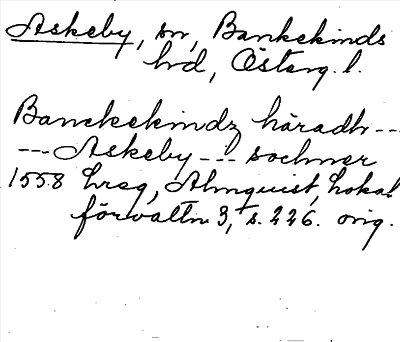 Askeby, sn, Bankekinds
hrd, Österg. l.
Banckekindz häradh ---
--- Askeby --- sochner
1558 hreg, Almquist, Lokal
förvaltn 3, s. 226. orig.